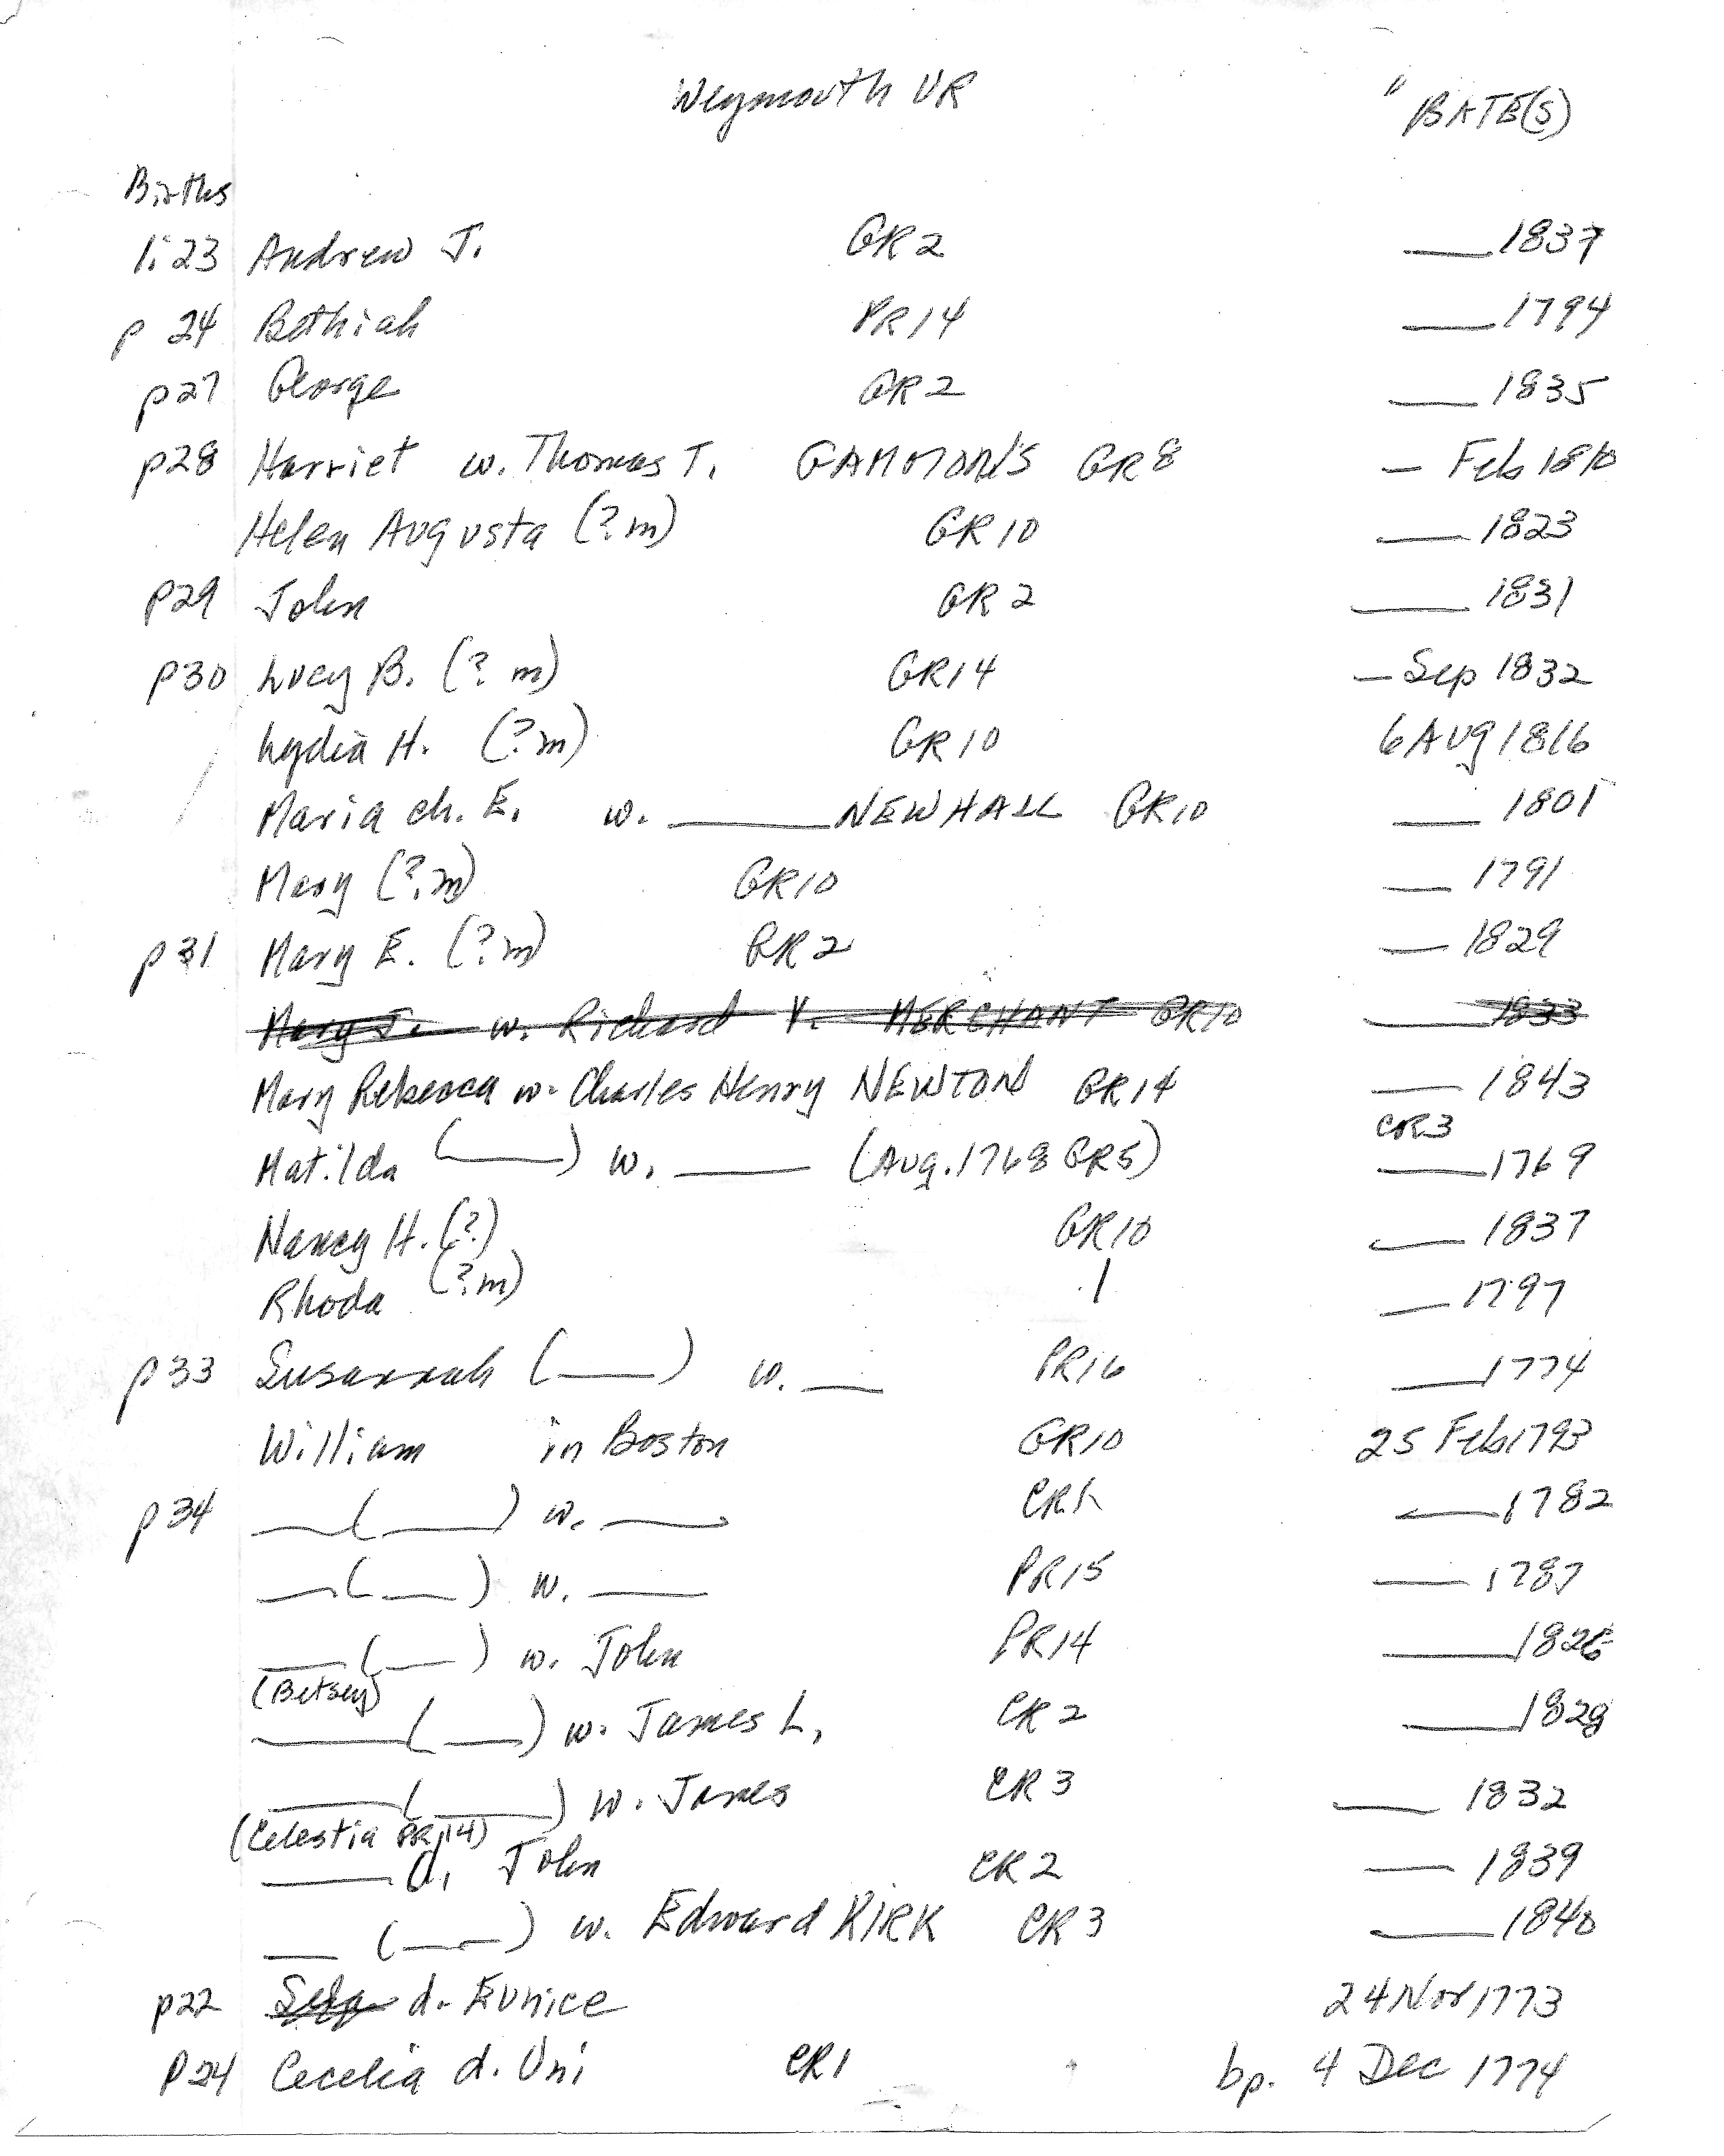 Weymouth VR " BATE(S)
Births
1:23 Andrew J. GR2 ___ 1837
p 24 Bethiah PR14 ___ 1794
p27 George GR2 ___ 1835
p28 Harriet w. Thomas T. GAMMONS GR8 — Feb 1810
Helen Augusta (? m) GR10 ___ 1823
P29 John GR2 ___ 1831
p30 Lucy B. (? m) GR14 — Sep 1832
Lydia H. (? m) GR10 6 Aug 1816
Maria ch. E. w. ___ NEWHALL GR10 ___ 1801
Mary (? m) GR10 ___ 1791
p31 Mary E. (? m) GR2 ___ 1829
Mary J. w. Richard V. MERCHANT GR10 ___ 1833
Mary Rebecca w. Charles Henry NEWTON GR14 ___ 1843
CR3
Matilda (___) w. ___ (Aug. 1768 GR5) ___ 1769
Nancy H. (?) GR10 ___ 1837
Rhoda (? m) 1 ___ 1797
p33 Susannah (___) w. ___ PR16 ___ 1774
William in Boston GR10 25 Feb 1793
p34 ___ (___) w. ___ ___ 1782
___ (___) w. ___ PR15 ___ 1787
___ (___) w. John PR14 ___
(Betsey)
___ (___) w. James L. CR2 ___ 1828
___ (___) w. James CR3 ___ 1832
(Celestia PR14)
___ d. John CR2 ___ 1839
___ (___) w. Edward KIRK CR3 ___ 1840
p22 d. Eunice 24 Nov 1773
P24 Cecelia d. Uni CR1 bp. 4 Dec 1774